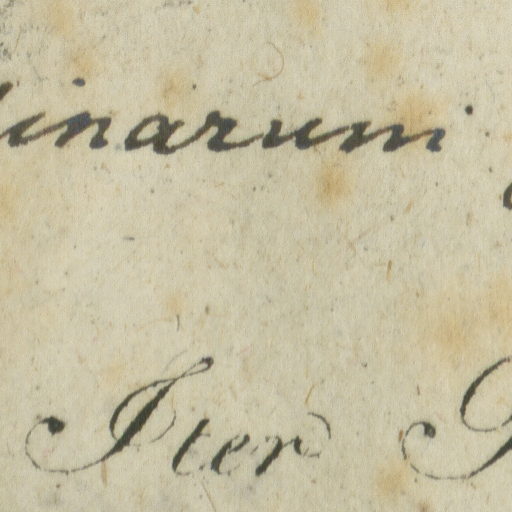 inarum
Iter